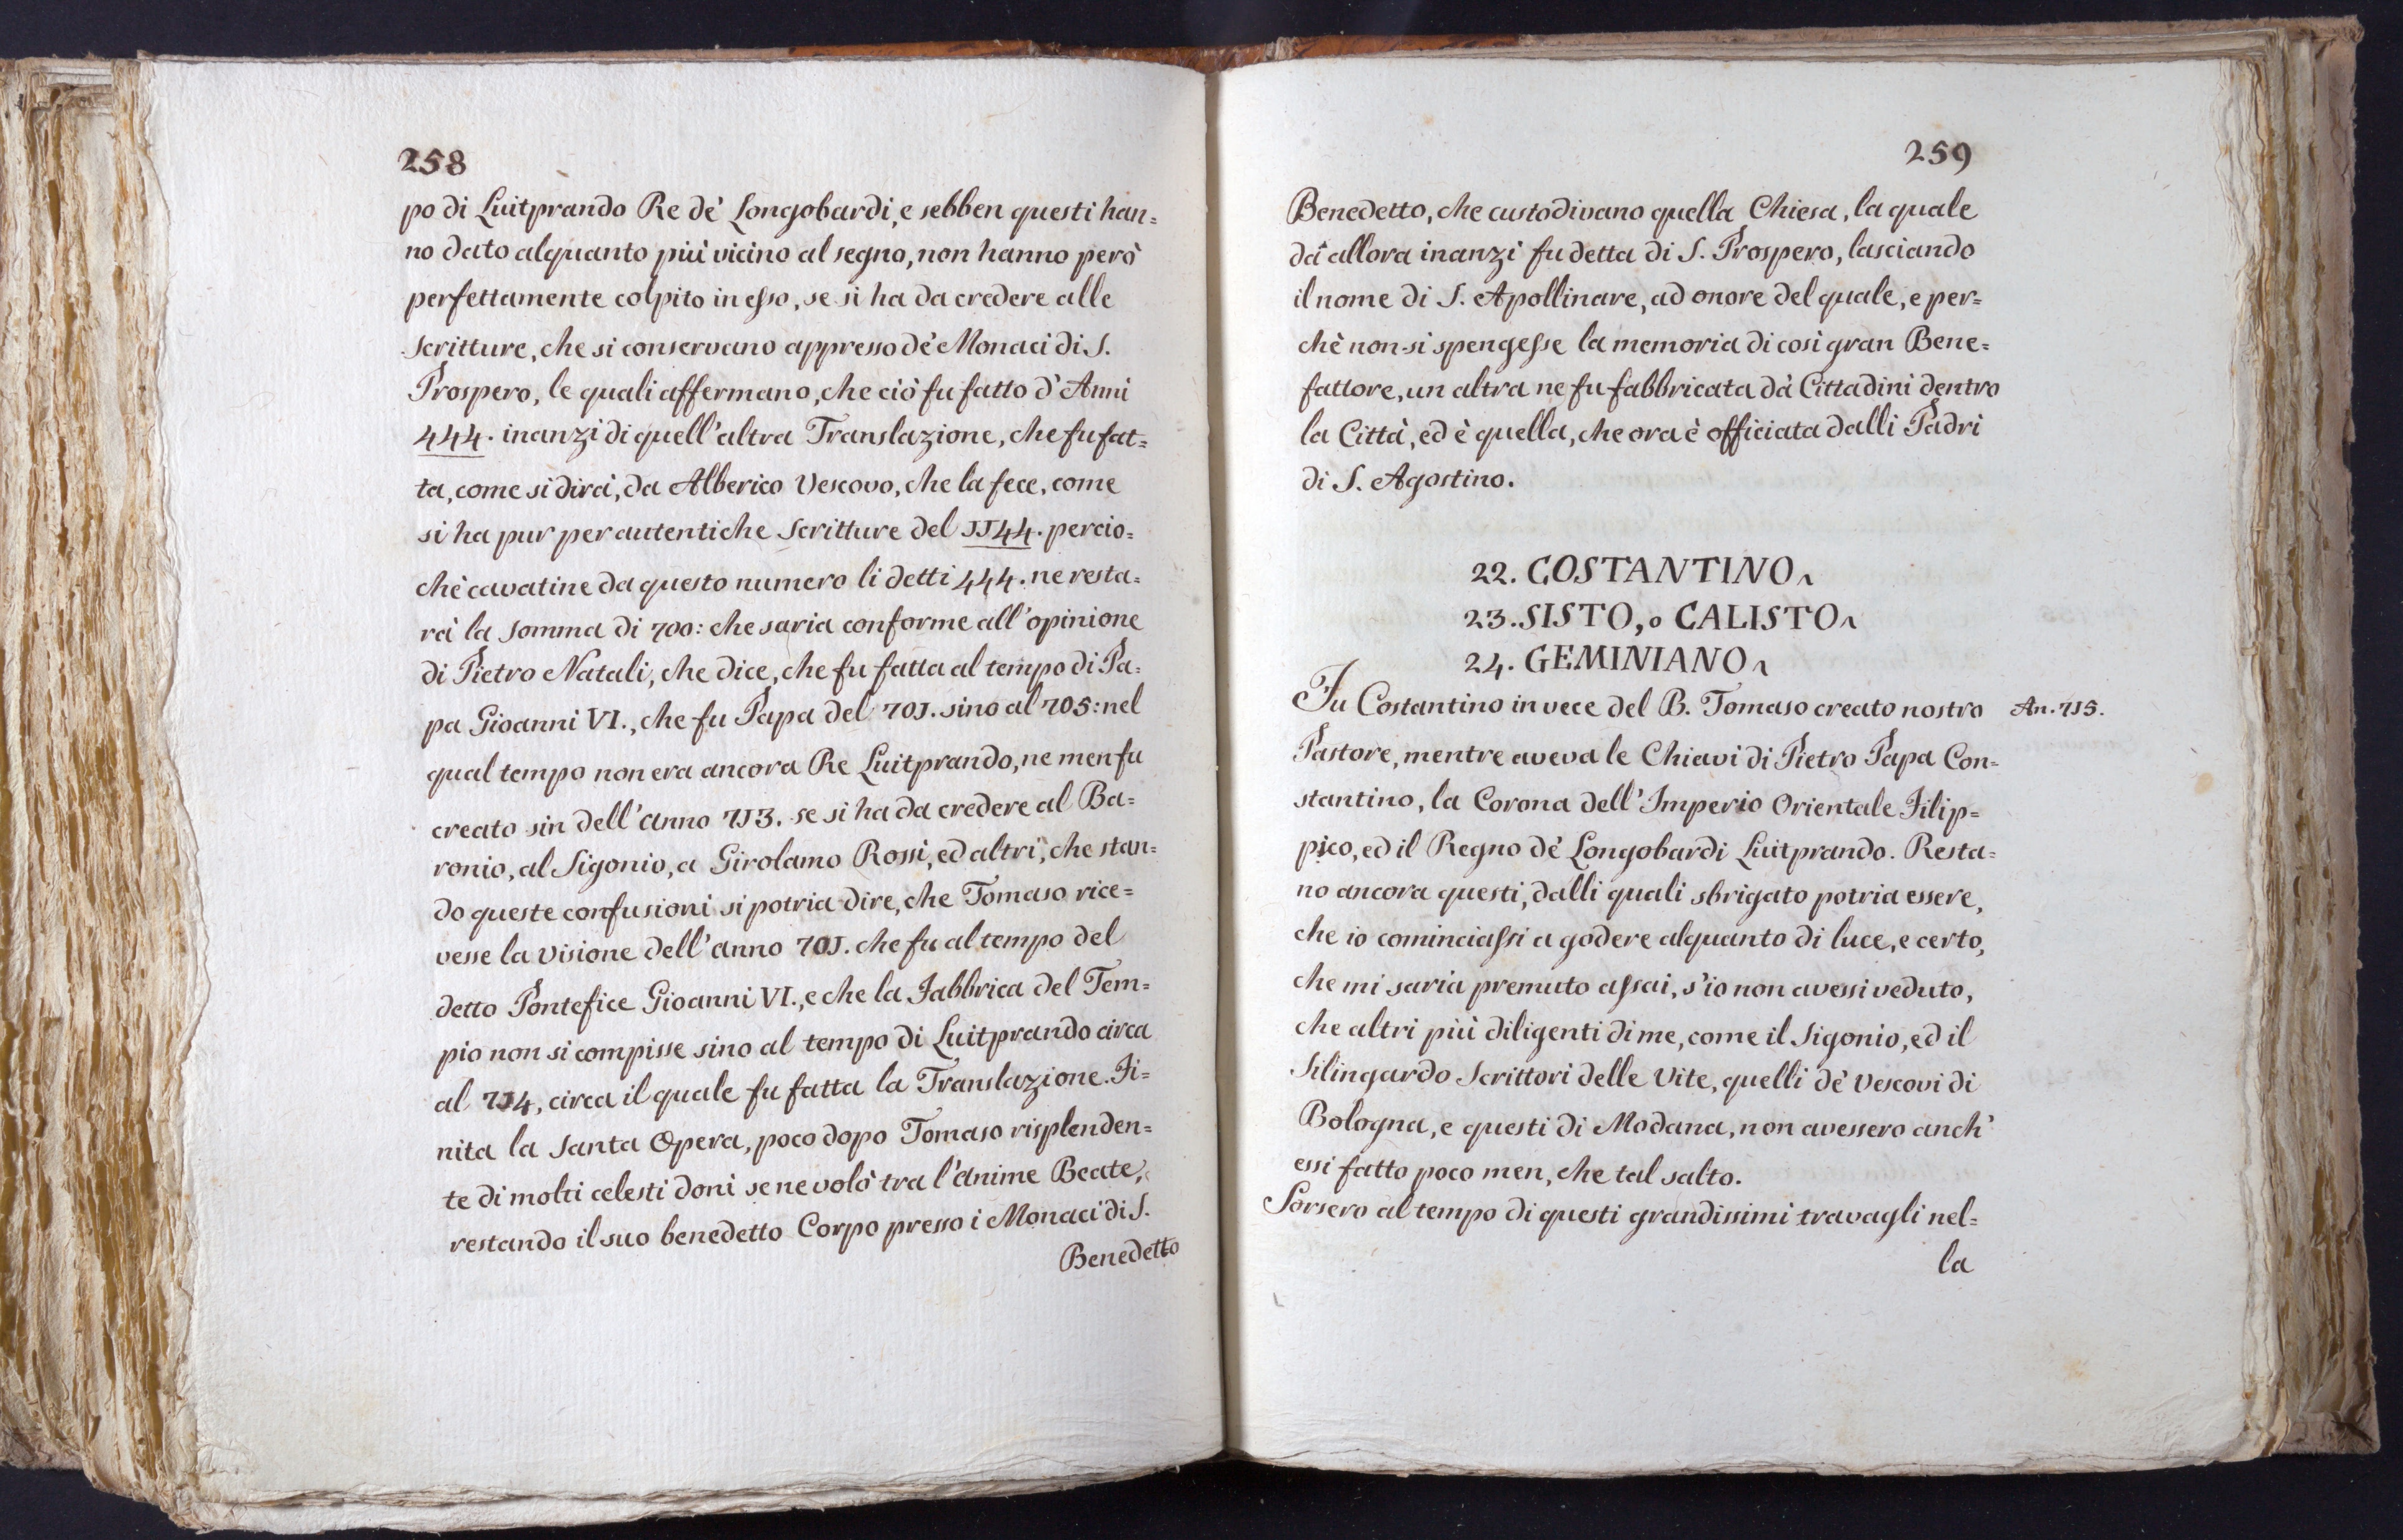 258
po di Luitprando Re de' Longobardi, e sebben questi han=
no dato alquanto più vicino al segno, non hanno però
perfettamente colpito in esso, se si ha da credere alle
Scritture, che si conservano appresso de' Monaci di S.
Prospero, le quali affermano, che ciò fu fatto d' Anni
444. inanzi di quell'altra Translazione, che fu fat=
ta, come si dirà, da Alberico Vescovo, che la fece, come
si ha pur per autentiche Scritture del 1144. percio=
chè cavatine da questo numero li detti 444. ne resta=
rà la Somma di 700: che saria conforme all'opinione
di Pietro Natali, che dice, che fu fatta al tempo di Pa=
pa Gioanni VI., che fu Papa del 701. sino al 705: nel
qual tempo non era ancora Re Luitprando, ne men fu
creato sin dell'Anno 713. se si ha da credere al Ba=
ronio, al Sigonio, a Girolamo Rossi, ed altri, che stan=
do queste confusioni si potria dire, che Tomaso rice=
vesse la visione dell'Anno 701. che fu al tempo del
detto Pontefice Gioanni VI., e che la Fabbrica del Tem=
pio non si compisse sino al tempo di Luitprando circa
al 714, circa il quale fu fatta la Translazione. Fi=
nita la Santa Opera, poco dopo Tomaso risplenden=
te di molti celesti doni se ne volò tra l'Anime Beate,
restando il suo benedetto Corpo presso i Monaci di S.
Benedetto
259
Benedetto, che custodivano quella Chiesa, la quale
da allora inanzi fu detta di S. Prospero, lasciando
il nome di S. Apollinare, ad onore del quale, e per=
chè non si spengesse la memoria di così gran Bene=
fattore, un altra ne fu fabbricata dà Cittadini dentro
la Città, ed è quella, che ora è officiata dalli Padri
di S. Agostino.
22. COSTANTINO
23. SISTO, o CALISTO
24. GEMINIANO
Fu Costantino in vece del B. Tomaso creato nostro
An. 715.
Pastore, mentre aveva le Chiavi di Pietro Papa Con=
stantino, la Corona dell'Imperio Orientale Filip=
pico, ed il Regno de' Longobardi Luitprando. Resta=
no ancora questi, dalli quali sbrigato potria essere,
che io cominciassi a godere alquanto di luce, e certo,
che mi saria premuto assai, s'io non avessi veduto,
che altri più diligenti di me, come il Sigonio, ed il
Silingardo Scrittori delle Vite, quelli de' Vescovi di
Bologna, e questi di Modana, non avessero anch'
essi fatto poco men, che tal salto.
Sorsero al tempo di questi grandissimi travagli nel=
la